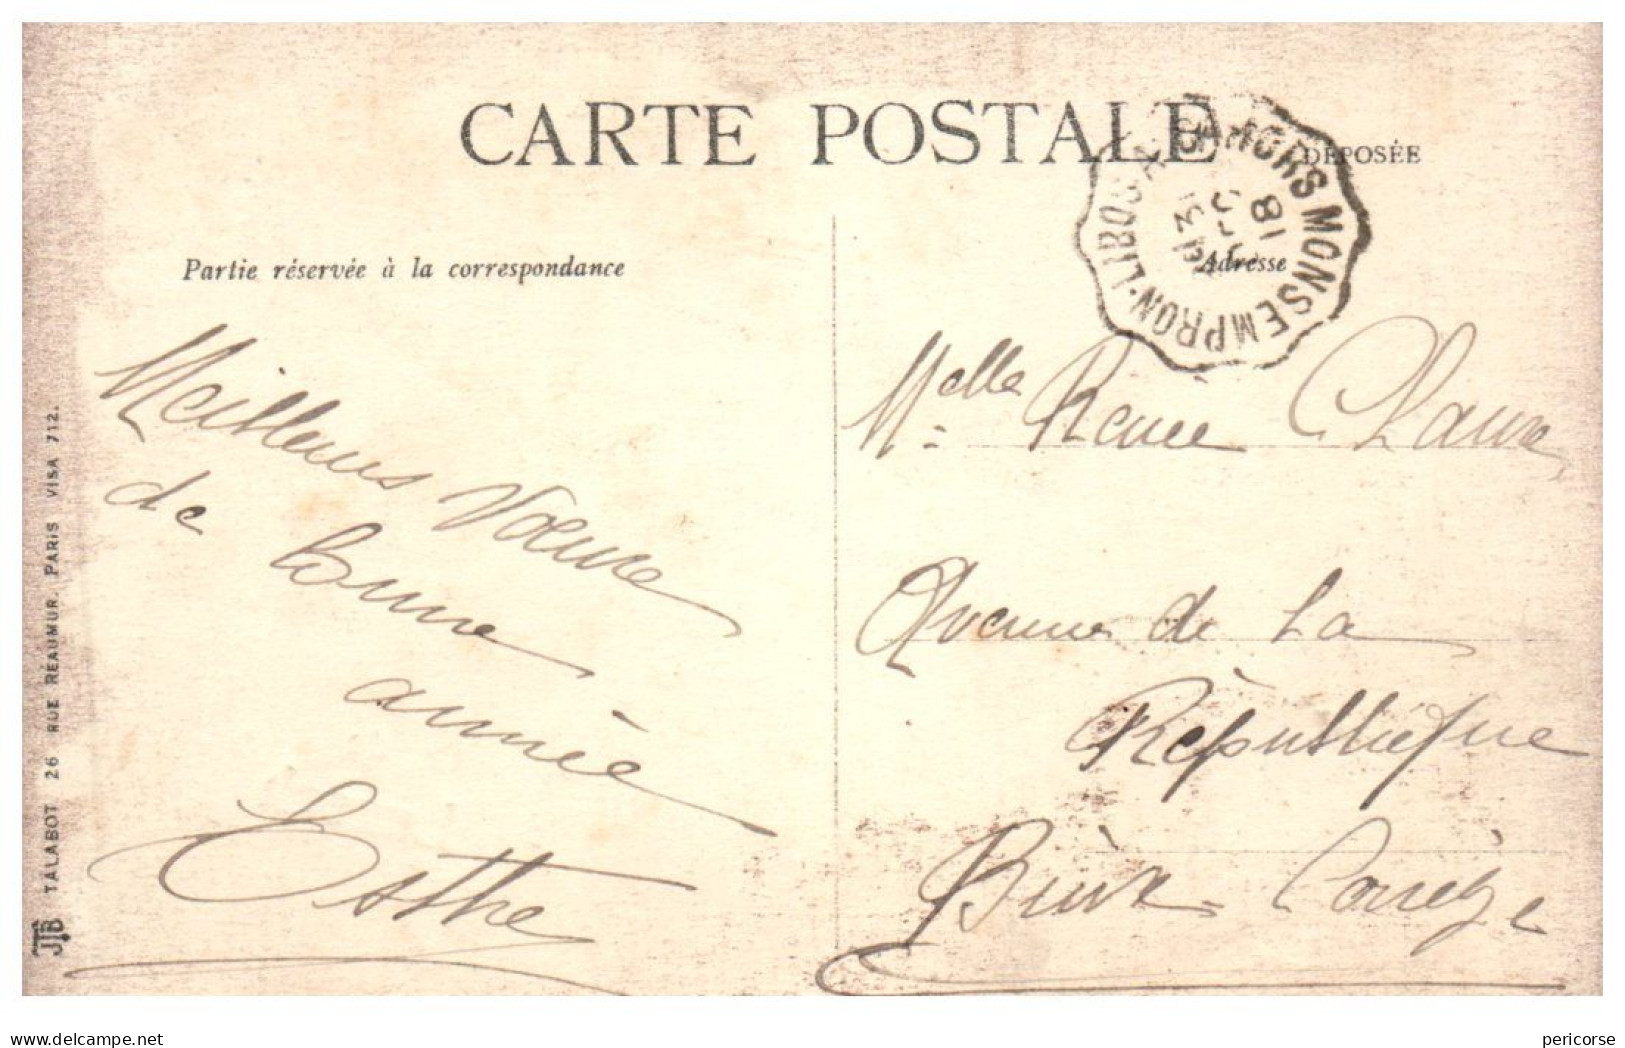 CARTE POSTALE
DÉPOSÉE
CAHORS MONSEMPRON-LIBOS
18
Partie réservée à la correspondance
Adresse
Meilleurs Voeux
de bonne
année
Esthe
Melle Renee
Avenue de La
République
Brive Corrèze
JTB TALABOT 26 RUE REAUMUR. PARIS VISA 712.
www.delcampe.net
pericorse